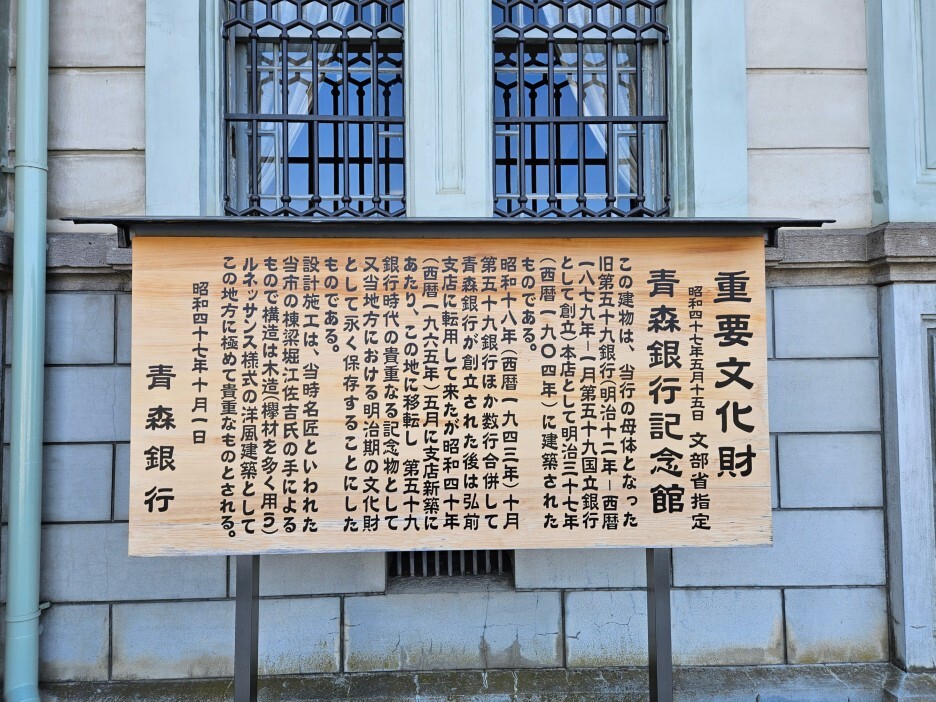 重要文化財
昭和四十七年五月十五日 文部省指定
青森銀行記念館
この建物は、当行の母体となった
旧第五十九銀行(明治十二年－西暦
一八七九年－一月第五十九国立銀行
として創立)本店として明治三十七年
(西暦一九〇四年)に建築された
ものである。
昭和十八年(西暦一九四三年)十月
第五十九銀行ほか数行合併して
青森銀行が創立された後は弘前
支店に転用して来たが昭和四十年
(西暦一九六五年)五月に支店新築に
あたり、この地に移転し 第五十九
銀行時代の貴重なる記念物として
又当地方における明治期の文化財
として永く保存することにした
ものである。
設計施工は、当時名匠といわれた
当市の棟梁堀江佐吉氏の手による
もので構造は木造(欅材を多く用う)
ルネッサンス様式の洋風建築として
この地方に極めて貴重なものとされる。
昭和四十七年十月一日
青森銀行